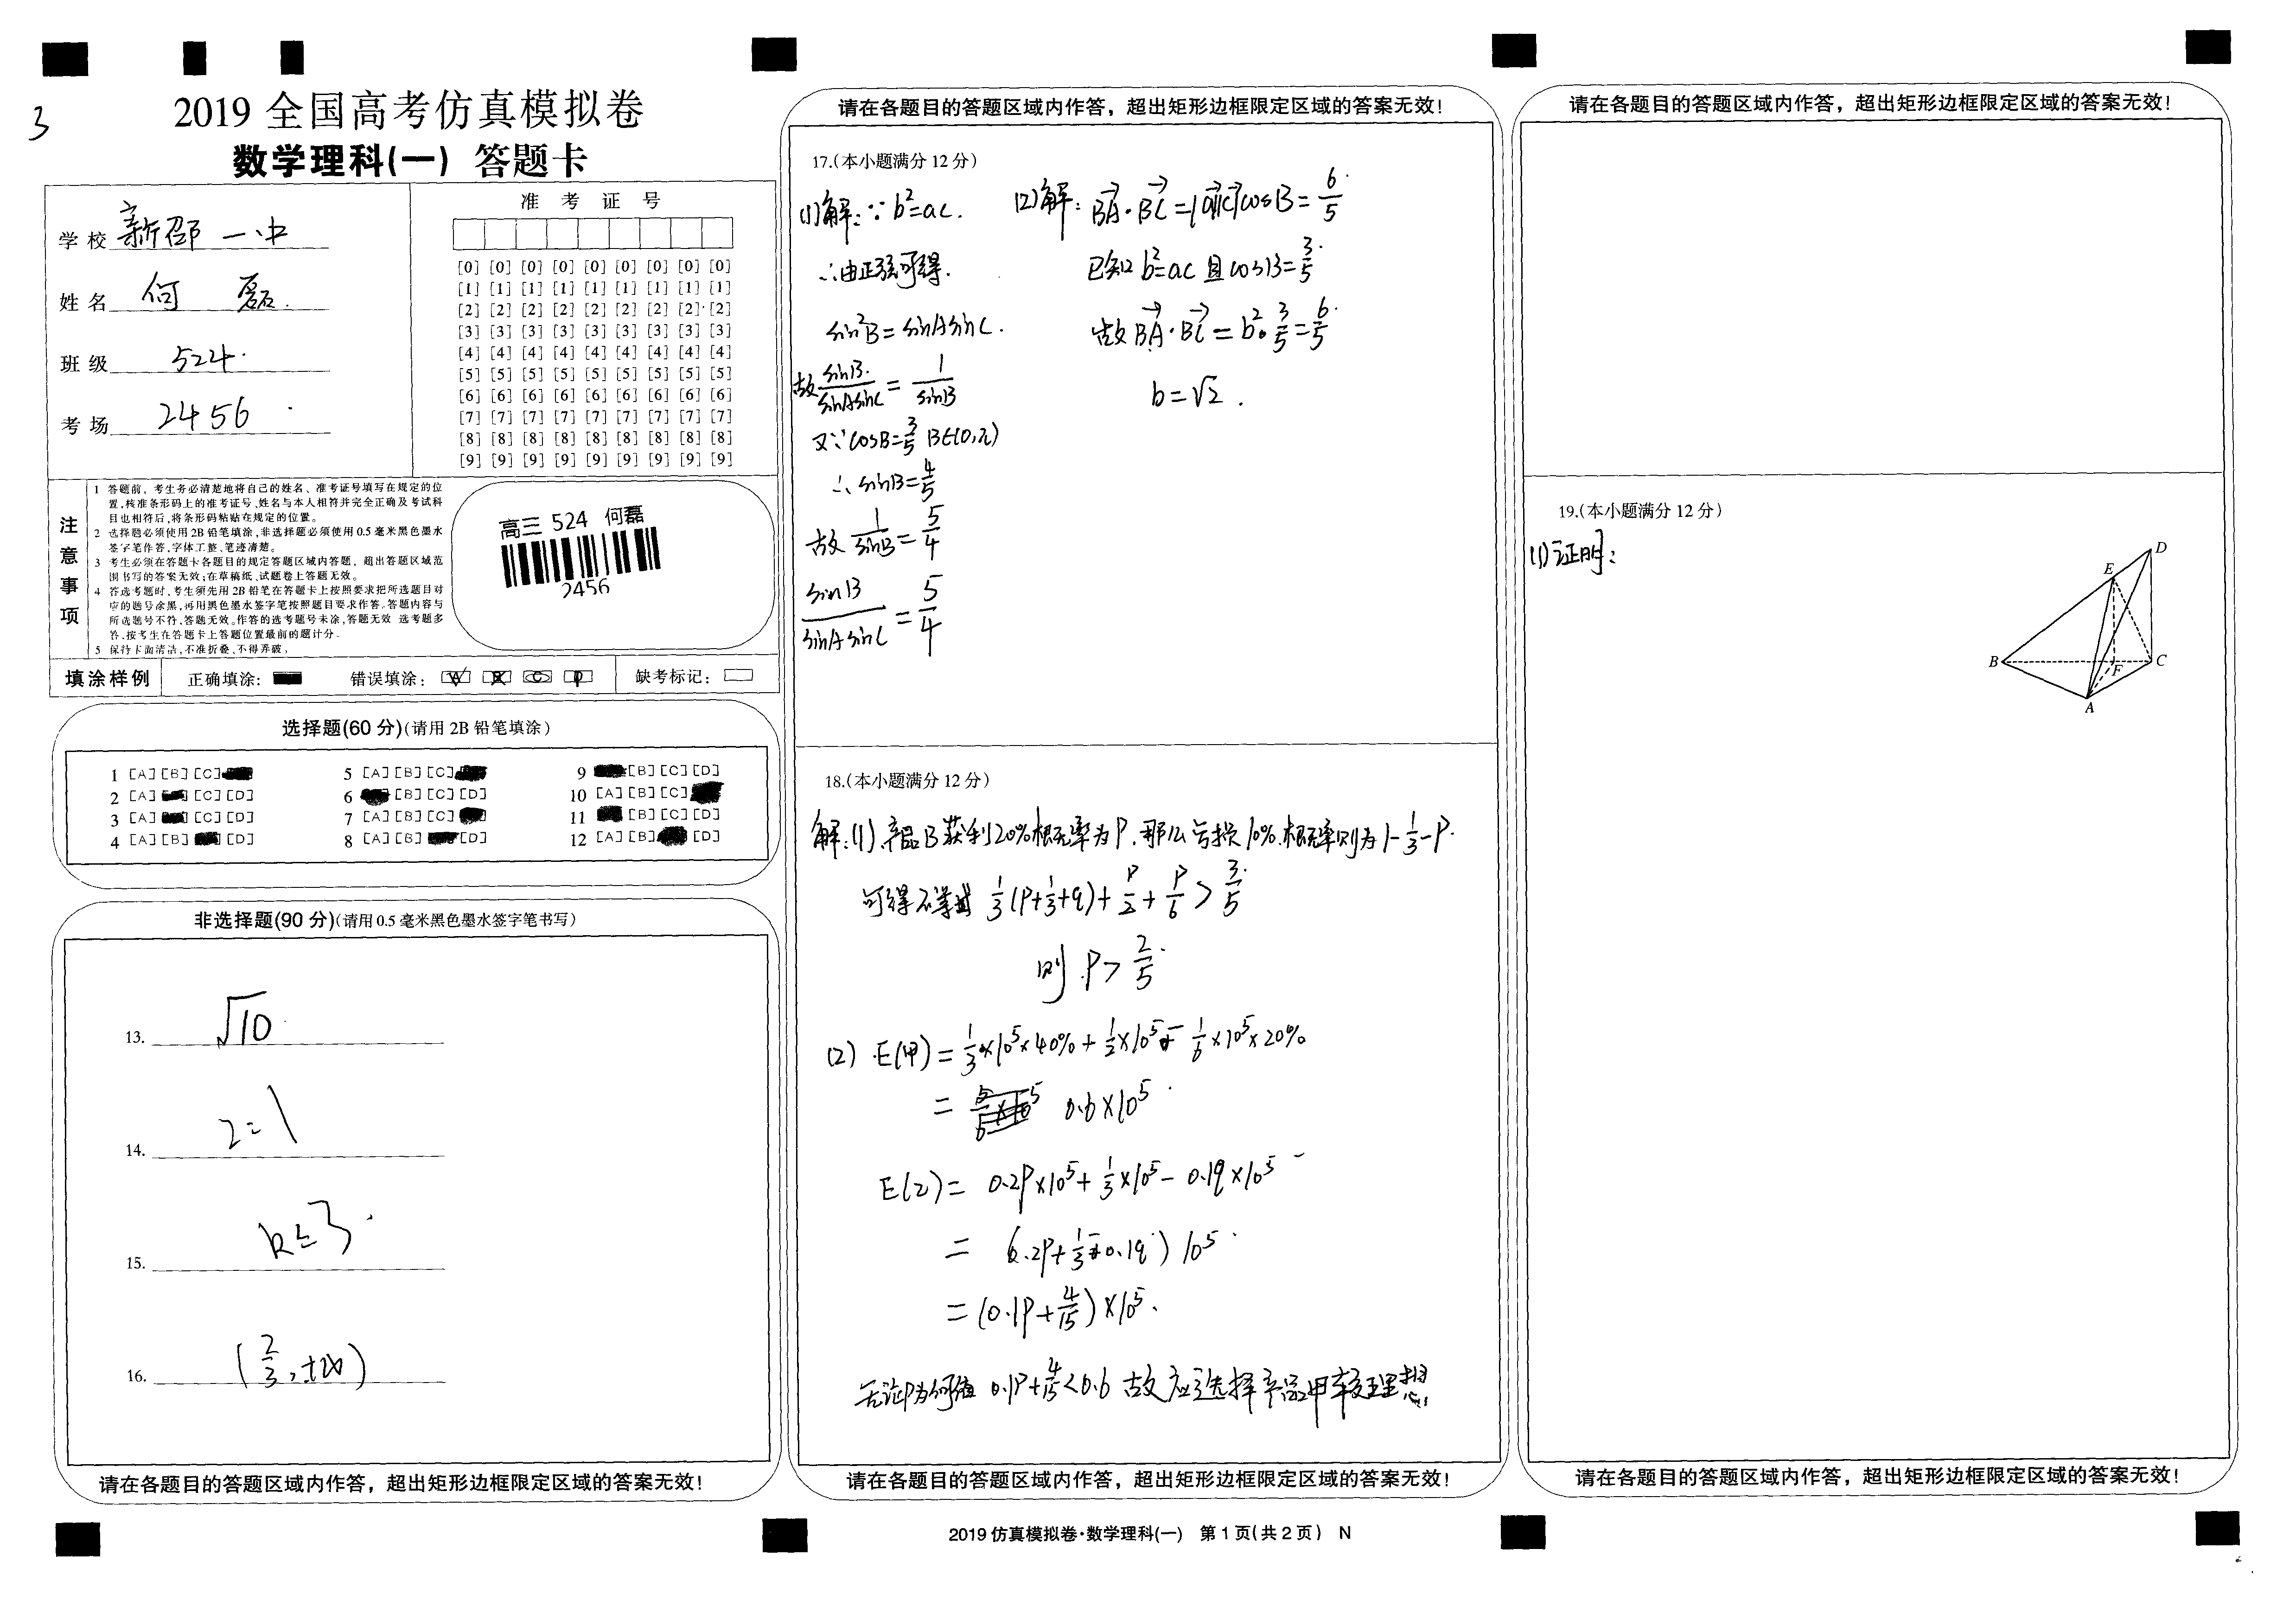 3
2019 全国高考仿真模拟卷
数学理科(一) 答题卡
学校 新邵一中
姓名 何 磊
班级 524
考场 2456
准 考 证 号
[0] [0] [0] [0] [0] [0] [0] [0] [0]
[1] [1] [1] [1] [1] [1] [1] [1] [1]
[2] [2] [2] [2] [2] [2] [2] [2] [2]
[3] [3] [3] [3] [3] [3] [3] [3] [3]
[4] [4] [4] [4] [4] [4] [4] [4] [4]
[5] [5] [5] [5] [5] [5] [5] [5] [5]
[6] [6] [6] [6] [6] [6] [6] [6] [6]
[7] [7] [7] [7] [7] [7] [7] [7] [7]
[8] [8] [8] [8] [8] [8] [8] [8] [8]
[9] [9] [9] [9] [9] [9] [9] [9] [9]
注意事项
1 答题前，考生务必清楚地将自己的姓名、准考证号填写在规定的位
置，核准条形码上的准考证号、姓名与本人相符并完全正确及考试科
目也相符后，将条形码粘贴在规定的位置。
2 选择题必须使用2B铅笔填涂，非选择题必须使用0.5毫米黑色墨水
签字笔作答，字体工整、笔迹清楚。
3 考生必须在答题卡各题目的规定答题区域内答题，超出答题区域范
围书写的答案无效；在草稿纸、试题卷上答题无效。
4 答选考题时，考生须先用2B铅笔在答题卡上按照要求把所选题目对
应的题号涂黑，再用黑色墨水签字笔按照题目要求作答。答题内容与
所选题号不符，答题无效。作答的选考题号未涂，答题无效 选考题多
答，按考生在答题卡上答题位置最前的题计分。
5 保持卡面清洁，不准折叠、不得弄破。
高三 524 何磊
2456
填涂样例 正确填涂： 错误填涂： 缺考标记：
选择题(60 分)(请用 2B 铅笔填涂)
1 [A] [B] [C]
2 [A] [C] [D]
3 [A] [C] [D]
4 [A] [B] [D]
5 [A] [B] [C]
6 [B] [C] [D]
7 [A] [B] [C]
8 [A] [B] [D]
9 [B] [C] [D]
10 [A] [B] [C]
11 [B] [C] [D]
12 [A] [B] [D]
非选择题(90 分)(请用 0.5 毫米黑色墨水签字笔书写)
13. √10
14. 2=1
15. k≤3
16. (2/3, +∞)
请在各题目的答题区域内作答，超出矩形边框限定区域的答案无效！
请在各题目的答题区域内作答，超出矩形边框限定区域的答案无效！
17.(本小题满分 12 分)
(1)解：∵ b²=ac.
∴由正弦可得.
sin²B = sinAsinC.
故 sinB/sinAsinC = 1/sinB
又∵ cosB=3/5 B∈(0,π)
∴ sinB=4/5
故 1/sinB = 5/4
sinB/sinAsinC = 5/4
(2)解：BA·BC=|a||c|cosB=6/5
已知 b²=ac 且 cosB=3/5
故 BA·BC = b²·3/5 = 6/5
b=√2.
18.(本小题满分 12 分)
解：(1) 产品B获利20%概率为P.那么亏损10%.概率则为1-1/3-P.
可得不等式 1/3(P+1/3+q)+P/2+P/6>3/5
则 P>2/5
(2) E(甲)=1/3×10⁵×40%+1/2×10⁵- 1/6×10⁵×20%
= 0.6×10⁵
E(乙)= 0.2P×10⁵+1/3×10⁵-0.1q×10⁵
= (0.2P+1/3-0.1q) 10⁵
=(0.1P+4/15)×10⁵.
无论P为何值 0.1P+4/15<0.6 故应选择产品甲较理想
请在各题目的答题区域内作答，超出矩形边框限定区域的答案无效！
2019 仿真模拟卷·数学理科(一) 第 1 页(共 2 页) N
请在各题目的答题区域内作答，超出矩形边框限定区域的答案无效！
19.(本小题满分 12 分)
(1)证明：
D
E
B
F
C
A
请在各题目的答题区域内作答，超出矩形边框限定区域的答案无效！